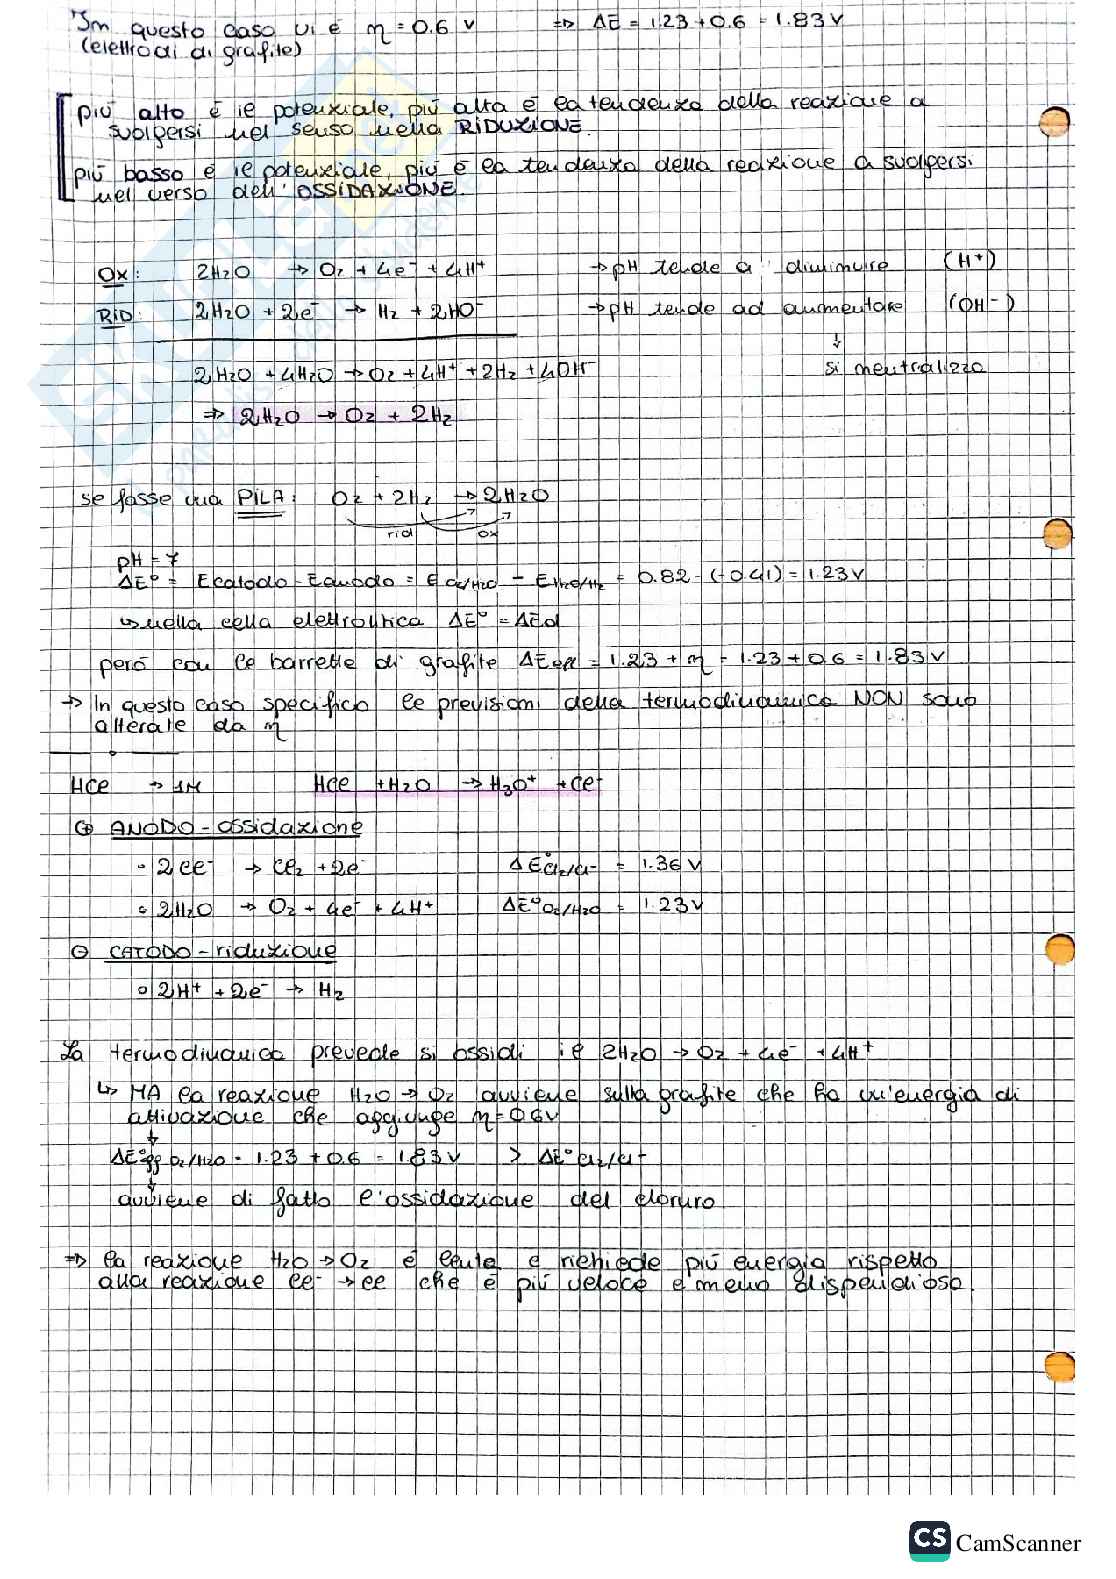 In questo caso vi è η = 0.6 V ⇒ ΔE = 1.23 + 0.6 = 1.83 V
(elettrodi di grafite)
più alto è il potenziale, più alta è la tendenza della reazione a
svolgersi nel senso nella RIDUZIONE.
più basso è il potenziale, più è la tendenza della reazione a svolgersi
nel verso dell'OSSIDAZIONE.
OX: 2H₂O → O₂ + 4e⁻ + 4H⁺ → pH tende a diminuire (H⁺)
RID: 2H₂O + 2e⁻ → H₂ + 2HO⁻ → pH tende ad aumentare (OH⁻)
↓
2H₂O + 4H₂O → O₂ + 4H⁺ + 2H₂ + 4OH⁻ si neutralizza
⇒ 2H₂O → O₂ + 2H₂
se fosse una PILA: O₂ + 2H₂ → 2H₂O
rid ox
pH = 7
ΔE° = Ecatodo - Eanodo = E O₂/H₂O - E H₂O/H₂ = 0.82 - (-0.41) = 1.23 V
↳ nella cella elettrolitica ΔE° = ΔEd
però con le barrette di grafite ΔEeff = 1.23 + η = 1.23 + 0.6 = 1.83 V
→ In questo caso specifico le previsioni della termodinamica NON sono
alterate da η
HCl → 1M HCl + H₂O → H₃O⁺ + Cl⁻
⊕ ANODO - ossidazione
◦ 2Cl⁻ → Cl₂ + 2e⁻ ΔE°Cl₂/Cl⁻ = 1.36 V
◦ 2H₂O → O₂ + 4e⁻ + 4H⁺ ΔE°O₂/H₂O = 1.23 V
⊖ CATODO - riduzione
◦ 2H⁺ + 2e⁻ → H₂
La termodinamica prevede si ossidi il 2H₂O → O₂ + 4e⁻ + 4H⁺
↳ MA la reazione H₂O → O₂ avviene sulla grafite che ha un'energia di
attivazione che aggiunge η = 0.6V
↓
ΔE°eff O₂/H₂O = 1.23 + 0.6 = 1.83 V > ΔE°Cl₂/Cl⁻
↓
avviene di fatto l'ossidazione del cloruro
⇒ la reazione H₂O → O₂ è lenta e richiede più energia rispetto
alla reazione Cl⁻ → Cl che è più veloce e meno dispendiosa.
CS CamScanner